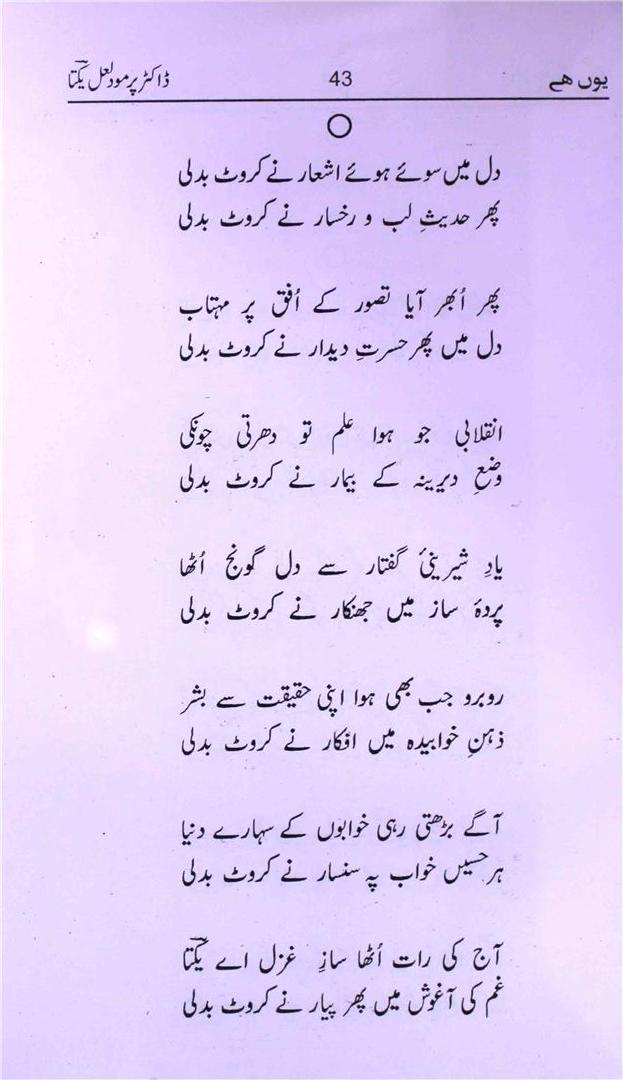 یوں ھے 43 ڈاکٹر پرمود لعل یکتاؔ
دل میں سوئے ہوئے اشعار نے کروٹ بدلی
پھر حدیثِ لب و رخسار نے کروٹ بدلی
پھر اُبھر آیا تصور کے اُفق پر مہتاب
دل میں پھر حسرتِ دیدار نے کروٹ بدلی
انقلابی جو ہوا علم تو دھرتی چونکی
وضعِ دیرینہ کے بیمار نے کروٹ بدلی
یادِ شیرینیٔ گفتار سے دل گونج اُٹھا
پردۂ ساز میں جھنکار نے کروٹ بدلی
روبرو جب بھی ہوا اپنی حقیقت سے بشر
ذہنِ خوابیدہ میں افکار نے کروٹ بدلی
آگے بڑھتی رہی خوابوں کے سہارے دنیا
ہر حسیں خواب پہ سنسار نے کروٹ بدلی
آج کی رات اُٹھا سازِ غزل اے یکتاؔ
غم کی آغوش میں پھر پیار نے کروٹ بدلی